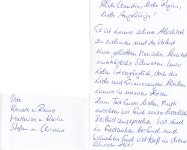 Liebe Claudia, liebe Regina,
liebe Angehörige!
Es ist immer schwer Abschied
zu nehmen und der Verlust
eines geliebten Menschen bereitet
unendliche Schmerzen. Unver-
die Liebe
und Erinnerungen
immer in unseren Herzen.
Zum Tod Eurer lieben Mutti
möchten wir Euch unser herzliches
Beileid aussprechen. Wir sind
in Gedanken bei Euch und
wünschen Euch viel Kraft in dieser
schweren Zeit.
Eure
Renate u. Reino
Matthias u. Maria
Stefan u. Christine